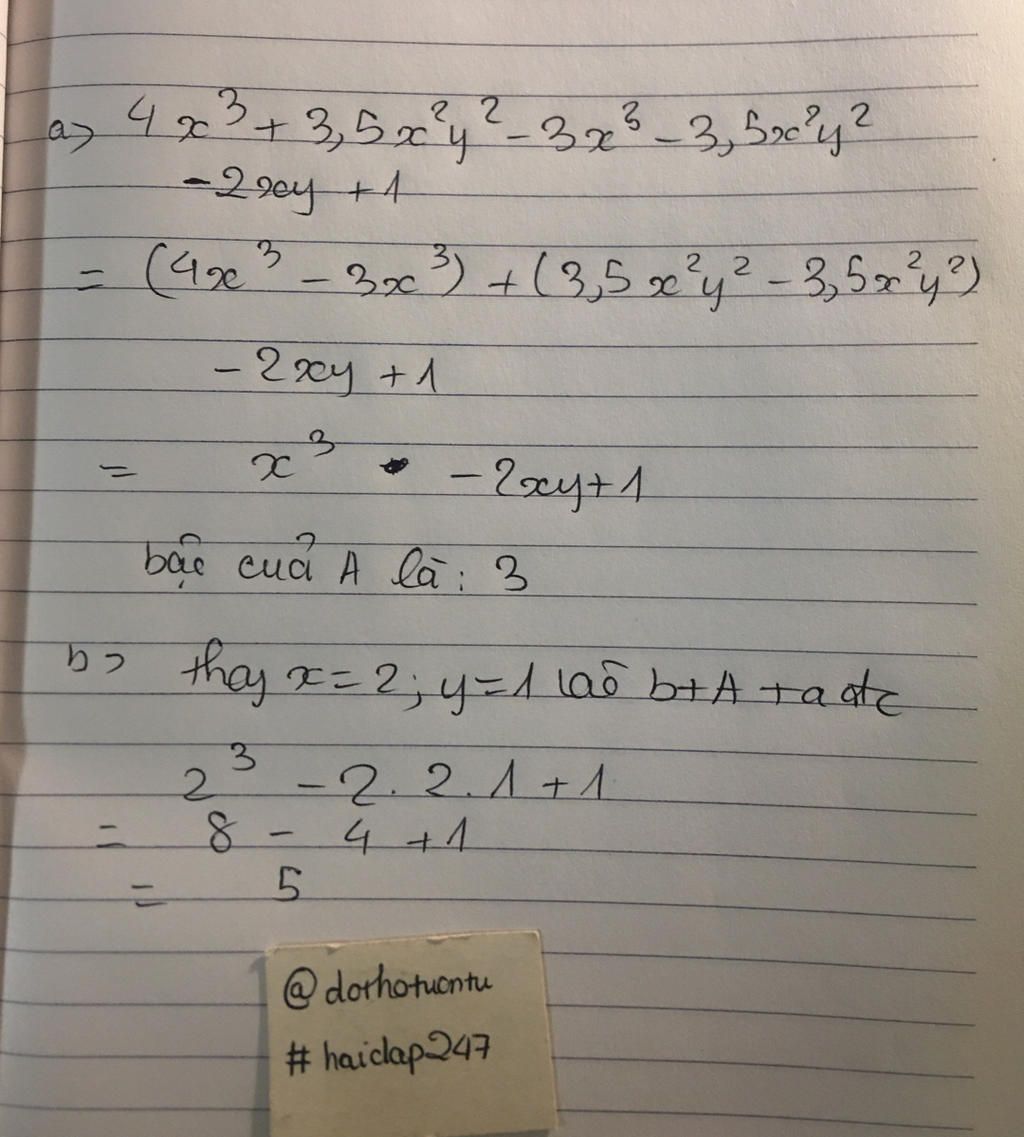 a> 4x³ + 3,5x²y² - 3x³ - 3,5x²y²
- 2xy + 1
= (4x³ - 3x³) + (3,5x²y² - 3,5x²y²)
- 2xy + 1
= x³ - 2xy + 1
bậc cuả A là : 3
b> thay x = 2 ; y = 1 b+A +a
2³ - 2 . 2 . 1 + 1
= 8 - 4 + 1
= 5
@dorhotuontu
# haiclap247